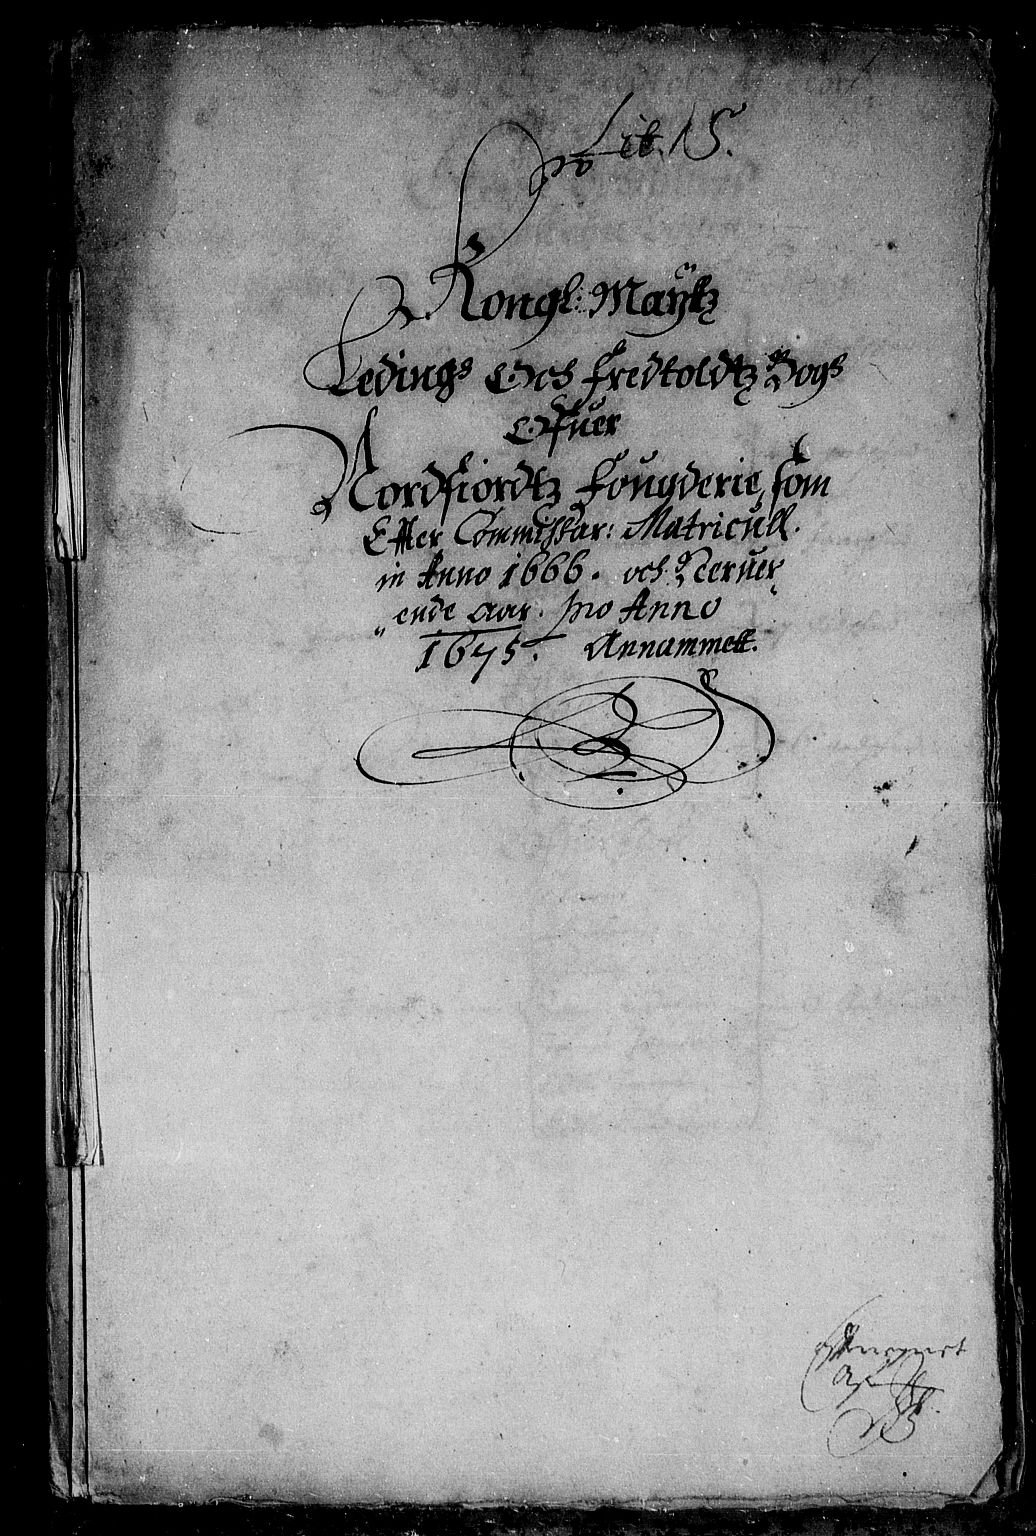 Lit. N S.
Kongl: Maytz
Ledings Och Fredtoldtz Bogs
Ofuer
Nordfiordtz Fougderie, som
Effter Commissar: Matricull.
in Anno 1666. och Neruer
„ende aar. pro Anno
1675. Annammett.